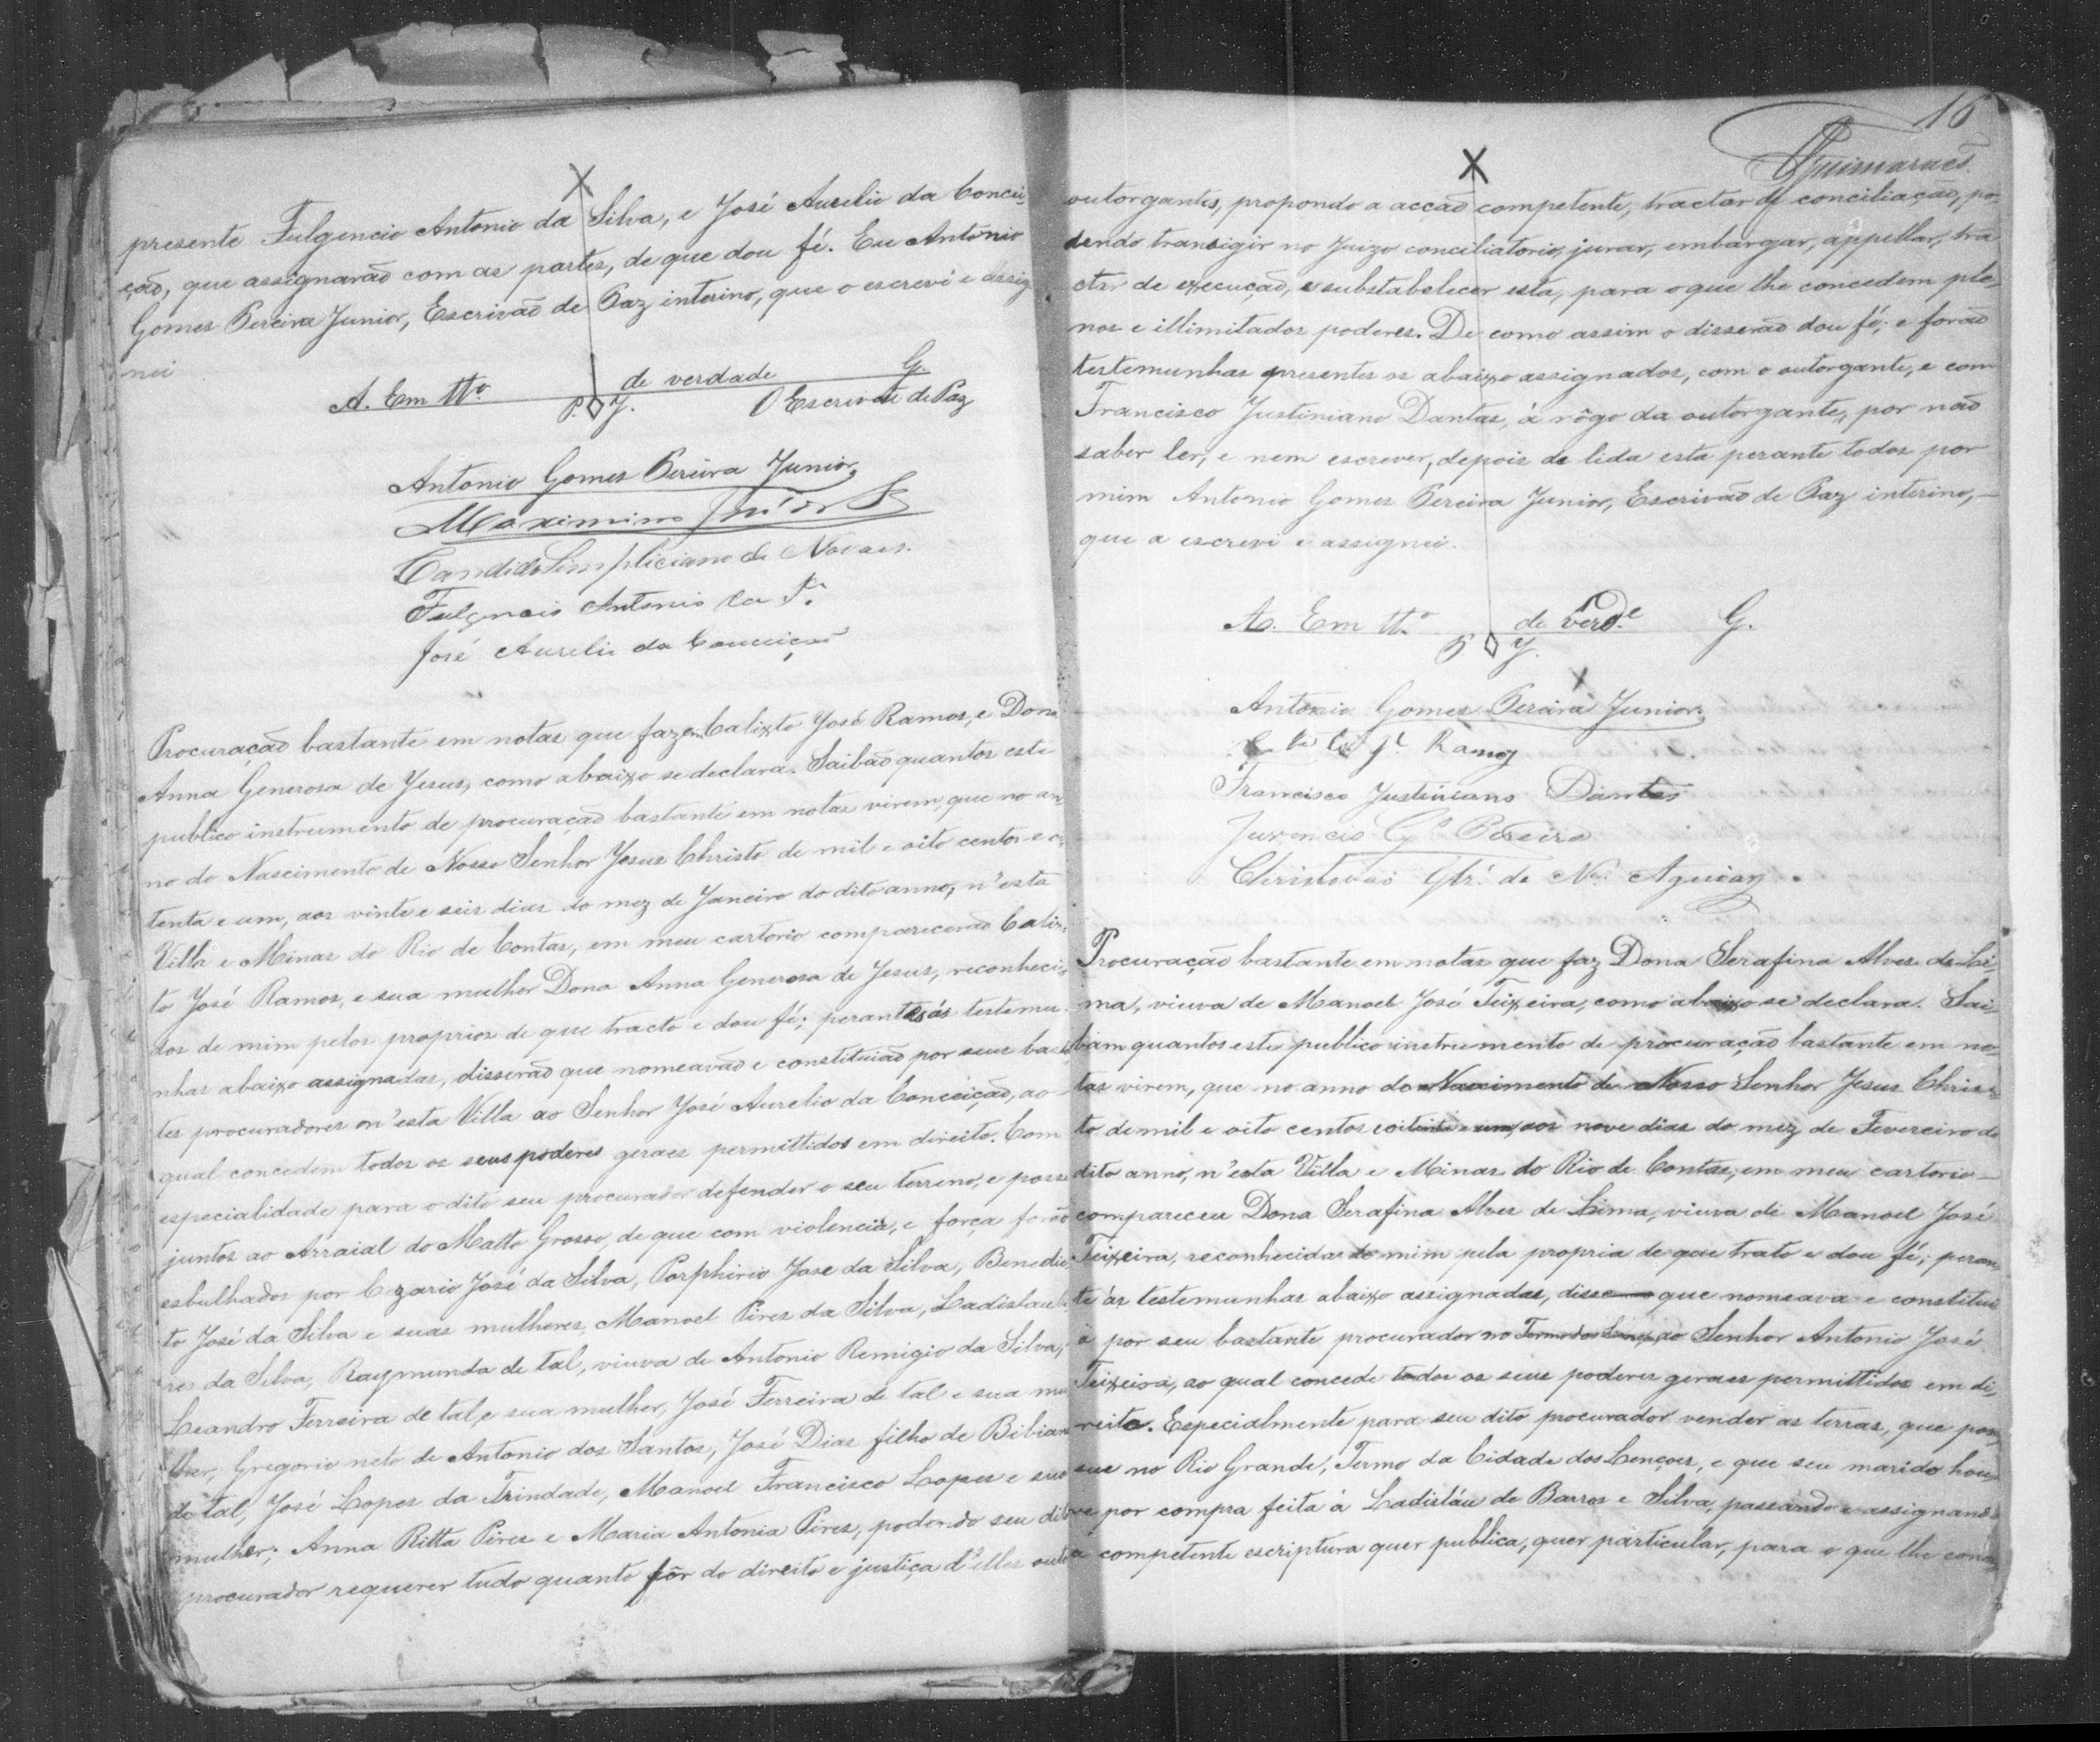 presente Fulgencio Antonio da Silva, e José Aurelio da Concei-
ção, que assignarão com as partes, de que dou fé. Eu Antonio
Gomes Pereira Junior, Escrivão de Paz interino, que o escrevi e assig-
nei
A. Em ttº de verdade G.
P. J. O Escrivão de Paz
Antonio Gomes Pereira Junior
Maximino
Candido Simpliciano de Novaes.
Fulgencio Antonio da Sª
José Aurelio da Conceição
Procuração bastante em notas que fazem Calixto José Ramos, e Dona
Anna Generosa de Jesus, como abaixo se declara. Saibão quantos este
publico instrumento de procuração bastante em notas virem, que no an-
no do Nascimento de Nosso Senhor Jesus Christo de mil e oito centos e oi-
tenta e um, aos vinte e seis dias do mez de Janeiro do dito anno, n'esta
Villa e Minas do Rio de Contas, em meu cartorio comparecerão Calix-
to José Ramos, e sua mulher Dona Anna Generosa de Jesus, reconheci-
dos de mim pelos proprios de que tracto e dou fé; perante ás testemu-
nhas abaixo assignadas, disserão que nomeavão e constituião por seus bastan-
tes procuradores n'esta Villa ao Senhor José Aurelio da Conceição, ao
qual concedem todos os seus poderes geraes permittidos em direito. Com
especialidade para o dito seu procurador defender o seu terreno, e posse
juntos ao Arraial do Matto Grosso, de que com violencia, e força forão
esbulhados por Cezario José da Silva, Porphirio Jose da Silva, Benedic-
to José da Silva e suas mulheres, Manoel Pires da Silva, Ladislau Pi-
res da Silva, Raymunda de tal, viuva de Antonio Remigio da Silva,
Leandro Ferreira de tal, e sua mulher, José Ferreira de tal e sua mu-
lher, Gregorio neto de Antonio dos Santos, José Dias filho de Bibiana
de tal, José Lopes da Trindade, Manoel Francisco Lopes e sua
mulher; Anna Ritta Pires e Maria Antonia Pires, podendo seu dito
procurador requerer tudo quanto fôr do direito e justiça d'elles outo
16
Guimaraes
outorgantes, propondo a accão competente, tractar de conciliação, po-
dendo transigir no Juizo conciliatorio, jurar, embargar, appellar, tra
ctar de execução, e substabelecer esta, para o que lhe concedem ple-
nos e illimitados poderes. De como assim o disserão dou fé; e forão
testemunhas presentes os abaixo assignados, com o outorgante, e com
Francisco Justiniano Dantas, á rôgo da outorgante, por não
saber ler, e nem escrever, depois de lida esta perante todos por
mim Antonio Gomes Pereira Junior, Escrivão de Paz interino,
que a escrevi e assignei.
A. Em ttº de verdº G.
P J.
Antonio Gomes Pereira Junior
Jé Ramos
Francisco Justiniano Dantas
Juvencio Gº Pereira
Christovão de Aguiar
Procuração bastante em notas que faz Dona Serafina Alves de Li-
ma, viuva de Manoel José Teixeira, como abaixo se declara. Sai-
bam quantos este publico instrumento de procuração bastante em no-
tas virem, que no anno do Nascimento de Nosso Senhor Jesus Chris-
to de mil e oito centos e oitenta e um, aos nove dias do mez de Fevereiro do
dito anno, n'esta Villa e Minas do Rio de Contas, em meu cartorio
compareceu Dona Serafina Alves de Lima, viuva de Manoel José
Teixeira, reconhecida de mim pela propria de que trato e dou fé; peran-
te ás testemunhas abaixo assignadas, disse que nomeava e constitui
a por seu bastante procurador no Termo dos Lençoes, ao Senhor Antonio José
Teixeira, ao qual concede todos os seus poderes geraes permittidos em di-
reito. Especialmente para seu dito procurador vender as terras, que pos-
sue no Rio Grande, Termo da Cidade dos Lençoes, e que seu marido hou-
ve por compra feita á Ladisláu de Barros e Silva, passando e assignando
a competente escriptura quer publica, quer particular, para o que lhe conce